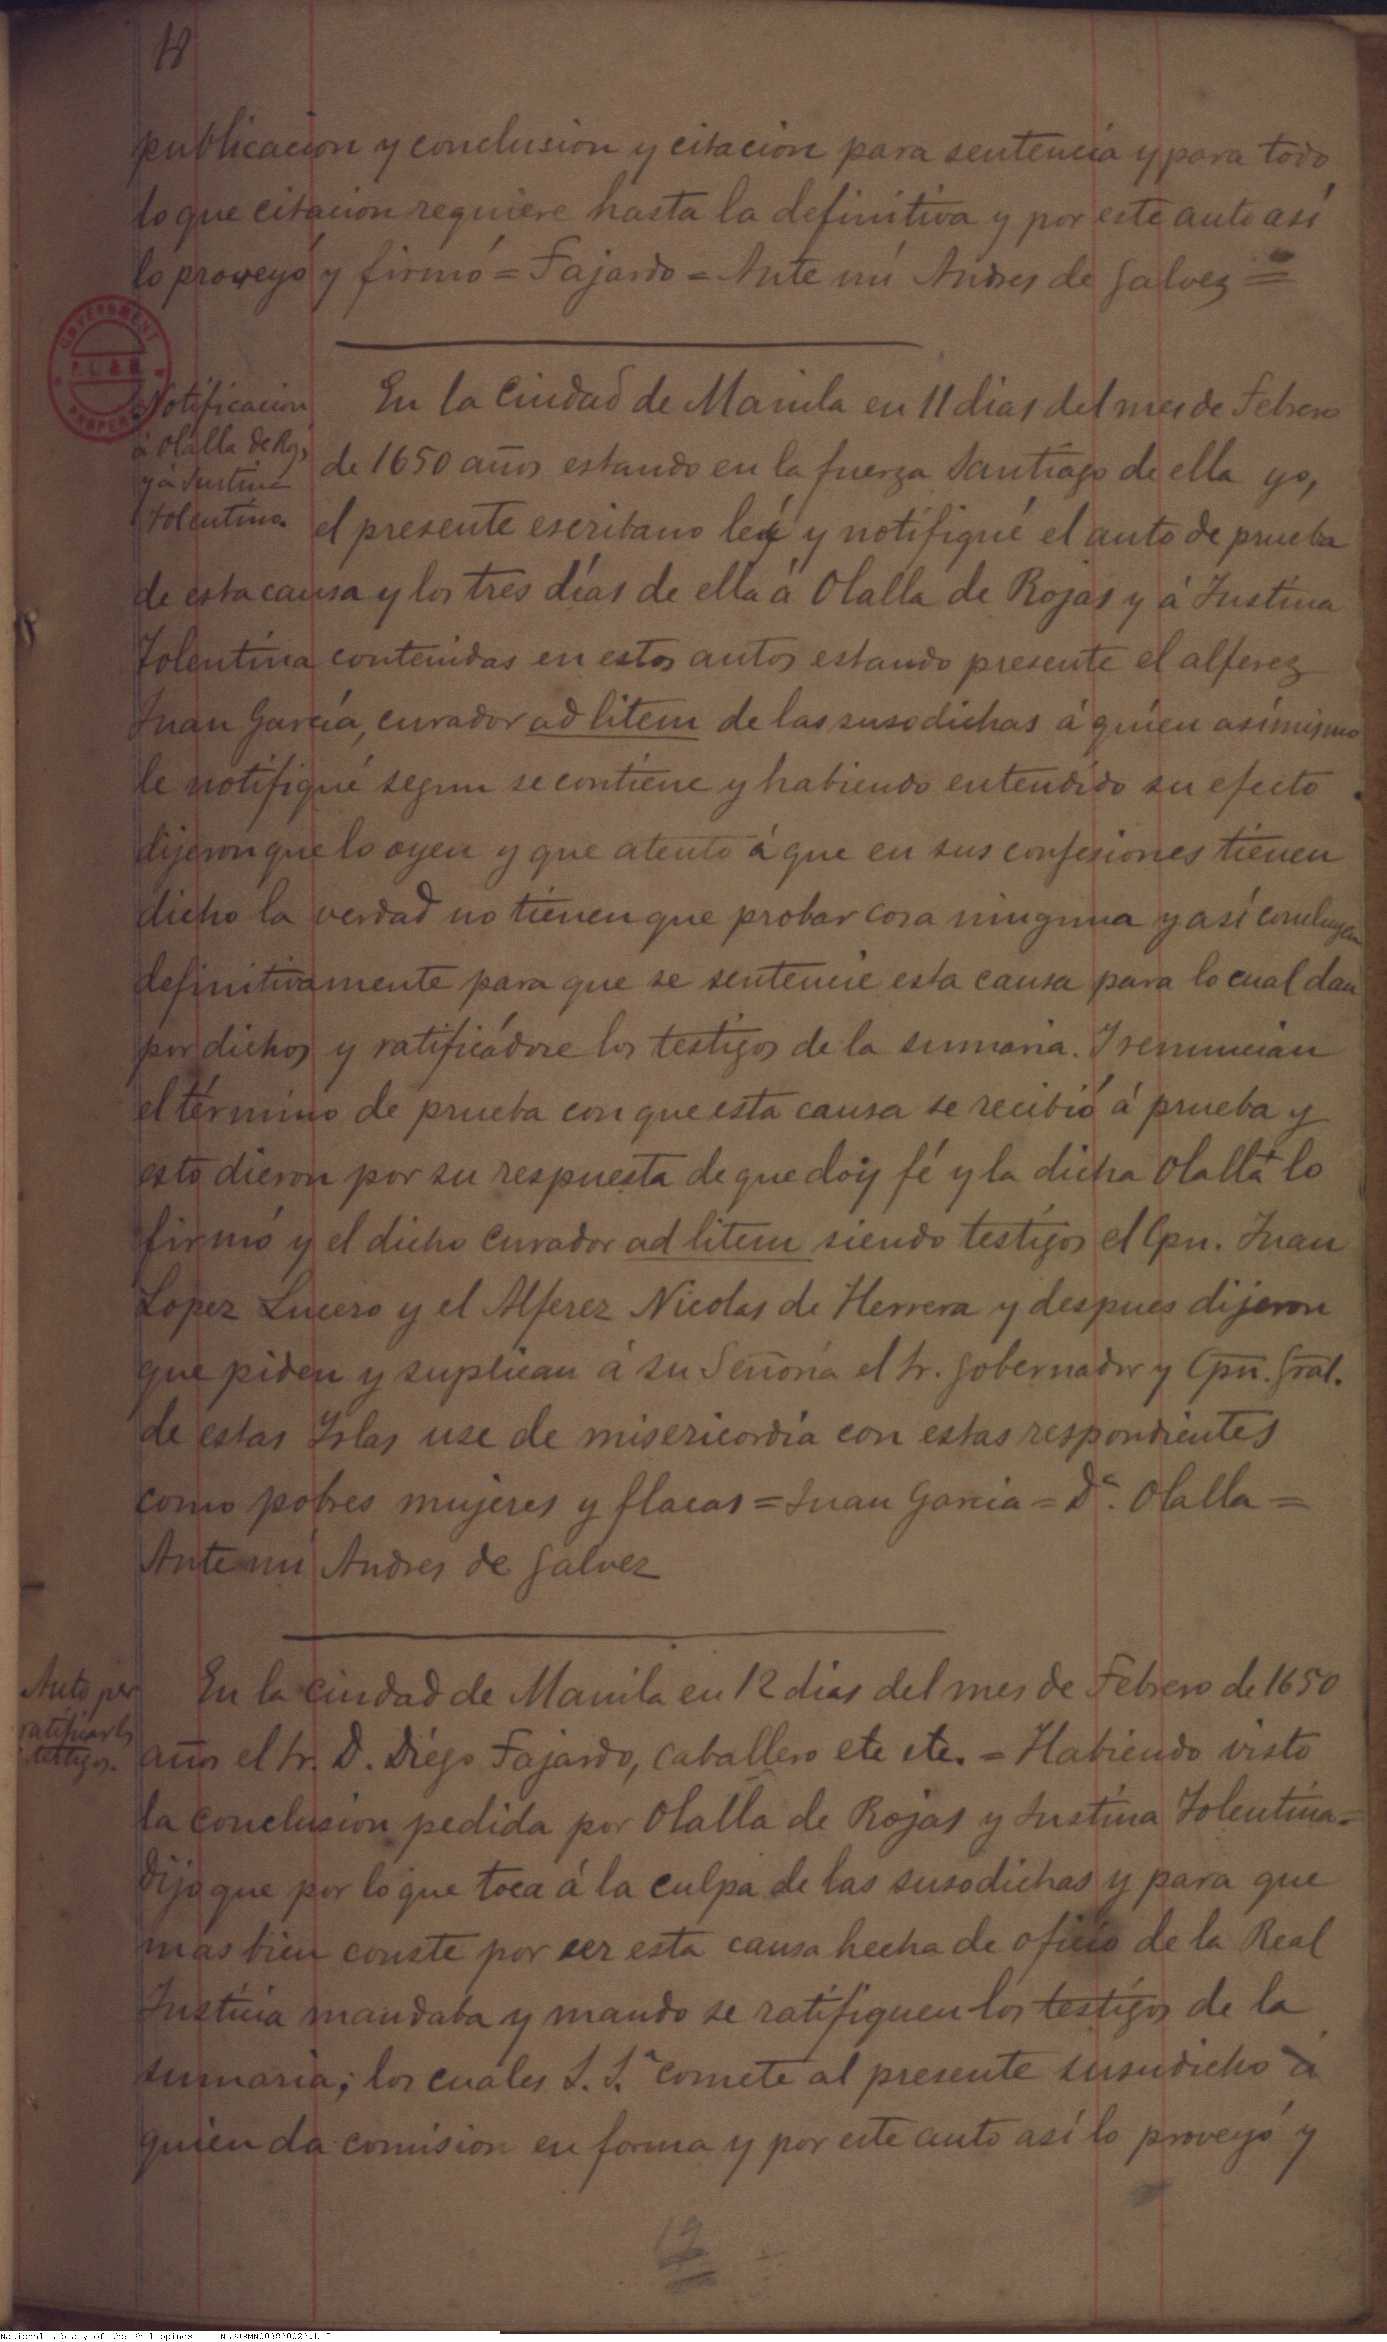 publicacion y conclusion y citacion para sentencia y para todo
lo que citacion requiere hasta la definitiva y por este auto así
lo proveyó y firmó = Fajardo = Ante mí Andres de Galvez =
GOVERNMENT
PROPERTY
Notificacion
á Olalla de Roj,
y á Justina
Tolentino.
En la Ciudad de Manila en 11 dias del mes de Febrero
de 1650 años estando en la fuerza Santiago de ella yo,
el presente escribano leý y notifiqué el auto de prueba
de esta causa y los tres días de ella á Olalla de Rojas y á Justina
Tolentina contenidas en estos autos estando presente el alferez
Juan García, curador ad litem de las susodichas á quien asímismo
le notifiqué segun se contiene y habiendo entendido su efecto
dijeron que lo oyen y que atento á que en sus confesiones tienen
dicho la verdad no tienen que probar cosa ninguna y así concluyen
definitivamente para que se sentencie esta causa para lo cual dan
por dichos y ratificádose los testigos de la sumaria. Y renuncian
el término de prueba con que esta causa se recibió á prueba y
esto dieron por su respuesta de que doy fé y la dicha Olalla lo
firmó y el dicho Curador ad litem siendo testigos el Cpn. Juan
Lopez Lucero y el Alferez Nicolas de Herrera y despues dijeron
que piden y suplican á su Señoría el Sr. Gobernador y Cpn. Gral.
de estas Islas use de misericordia con estas respondientes
como pobres mujeres y flacas = Juan Garcia = Dª. Olalla =
Ante mí Andres de Galvez
Auto per
ratificar los
testigos.
En la ciudad de Manila en 12 dias del mes de Febrero de 1650
años el Sr. D. Diégo Fajardo, caballero ete ete. = Habiendo visto
la conclusion pedida por Olalla de Rojas y Justina Tolentina =
dijo que por lo que toca á la culpa de las susodichas y para que
mas bien conste por ser esta causa hecha de oficio de la Real
Justicia mandaba y mando se ratifiquen los testigos de la
sumaria; los cuales S. Sª comete al presente susudicho á
quien da comision en forma y por este auto así lo proveyó y